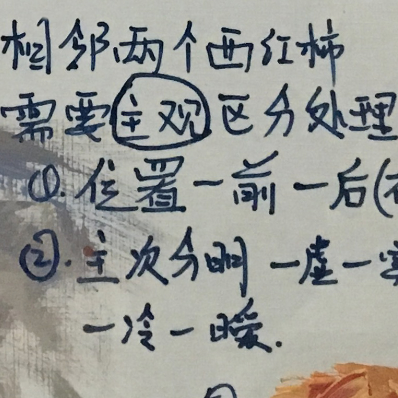 相邻两个西红柿
需要主观区分处理
①.位置一前一后(
②.主次分明 一虚一
一冷一暖.